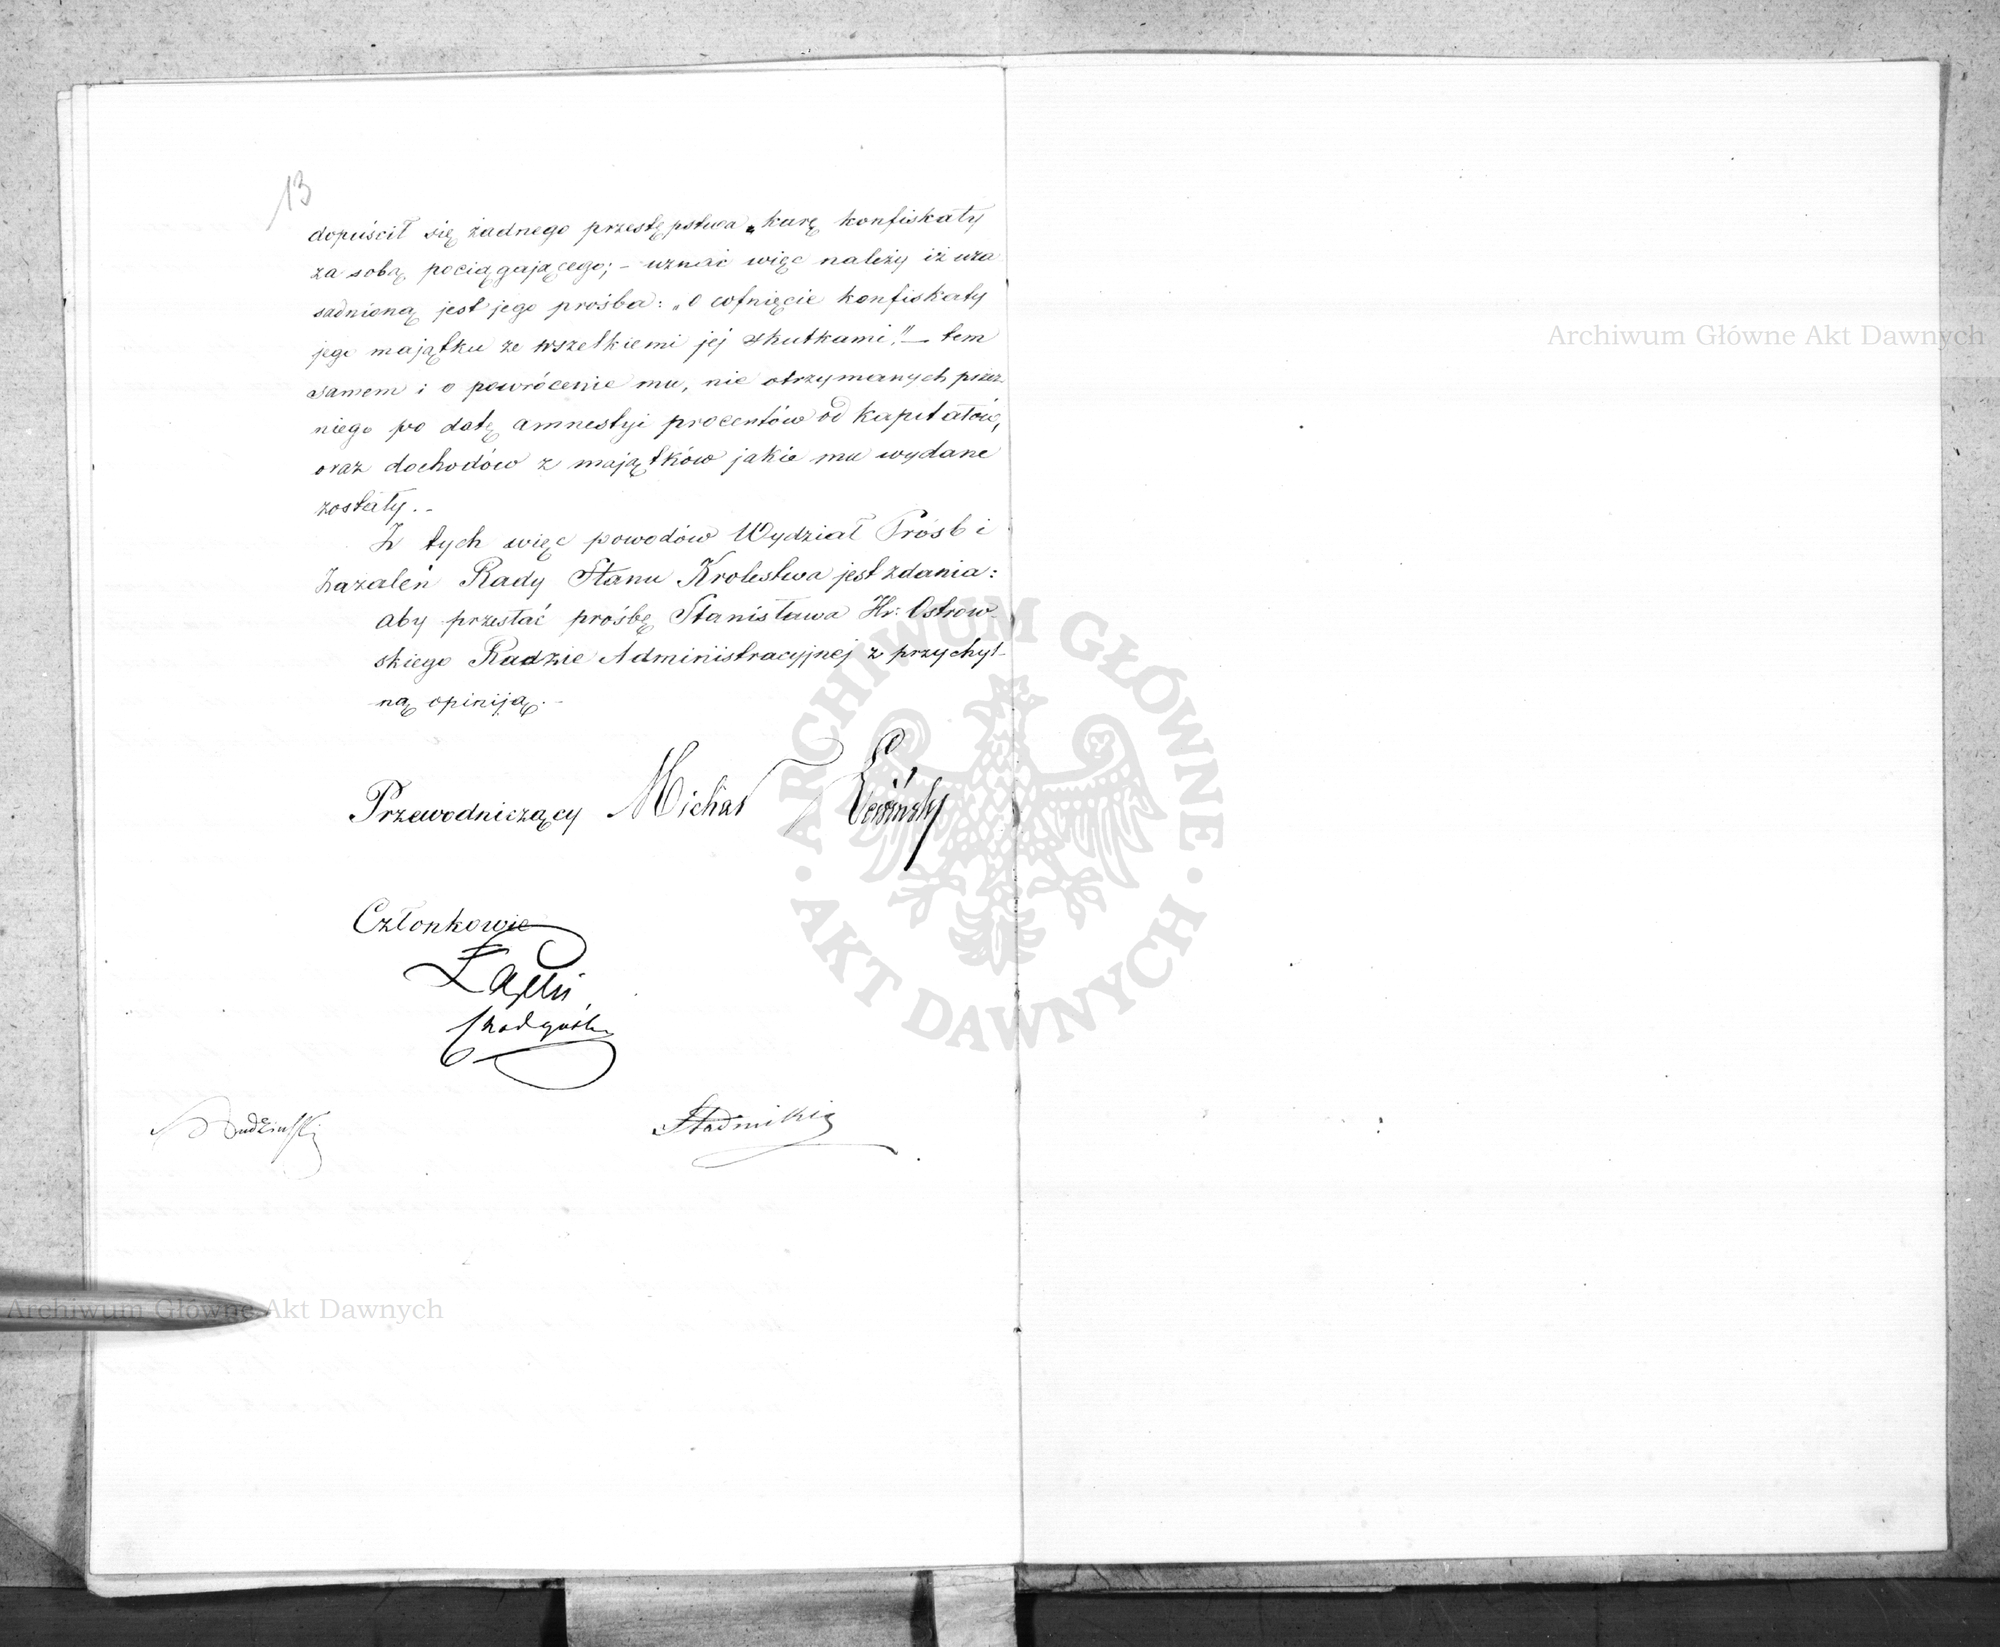 13
dopuścił się żadnego przestępstwa, karę konfiskaty
za sobą pociągającego; – uznać więc należy iż uza
sadnioną jest jego prośba: „o cofnięcie konfiskaty
jego majątku ze wszelkiemi jej skutkami." – tem
samem i o powrócenie mu, nie otrzymanych przez
niego po datę amnestyi procentów od kapitałów,
oraz dochodów z majątków jakie mu wydane
zostały. –
Z tych więc powodów Wydział Próśb i
Zażaleń Rady Stanu Krolestwa jest zdania:
aby przesłać prośbę Stanisława Hr: Ostrow-
skiego Radzie Administracyjnej z przychyl-
ną opiniją. –
Przewodniczący Michał
Członkowie
Archiwum Główne Akt Dawnych
Archiwum Główne Akt Dawnych
ARCHIWUM GŁÓWNE · AKT DAWNYCH ·